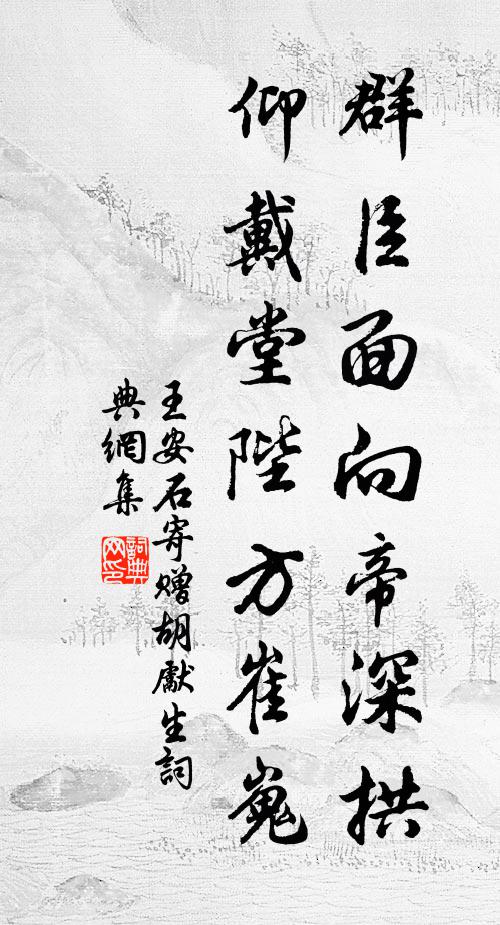 群臣面向帝深拱
仰戴堂陛方崔嵬
王安石寄贈胡獻生詞
典網集
詞典
网印